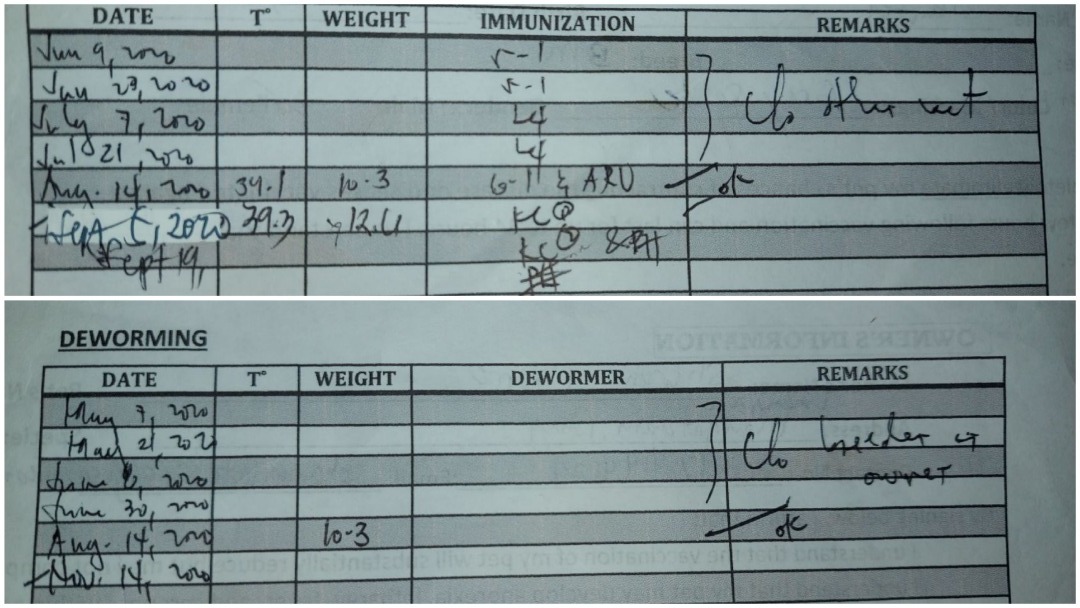 DATE T° WEIGHT IMMUNIZATION REMARKS
Jun 9, 2020 5-1
Jun 23, 2020 5-1
July 7, 2020 L4 C/o other vet
July 21, 2020 L4
Aug. 14, 2020 39.1 10.3 6-1 & ARV ok
Sept 5, 2020 39.3 12.4 KC①
Sept 19, KC②
DEWORMING
DATE T° WEIGHT DEWORMER REMARKS
May 7, 2020
May 21, 2020 C/o breeder or
June 2020 owner
June 30, 2020
Aug. 14, 2020 10.3 ok
Nov. 14, 2020
OWNER'S INFORMATION
I understand that the vaccination of my pet will substantially reduce